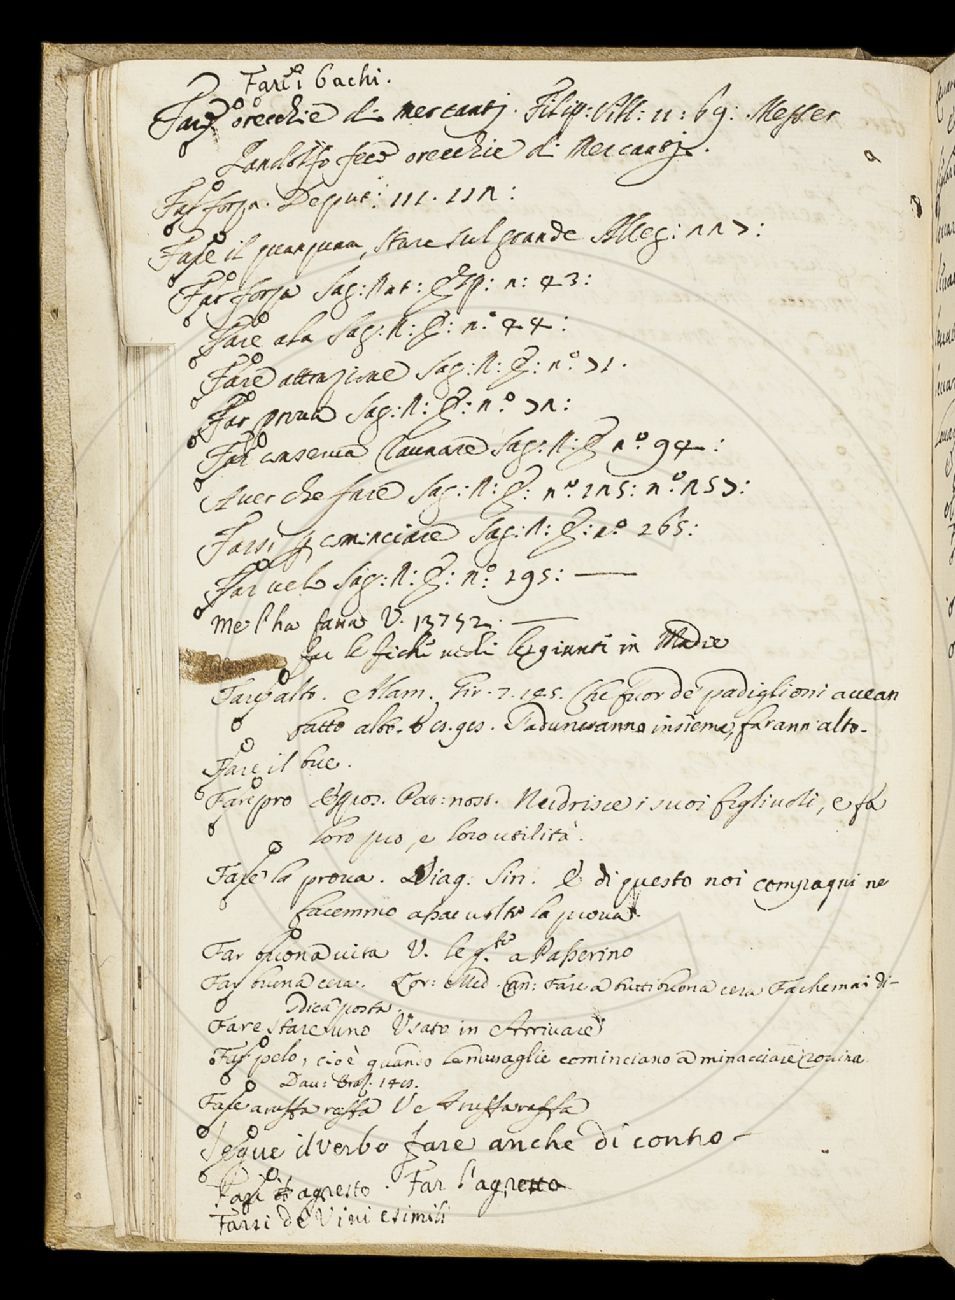 Far i bachi.
Far orecchie di mercantj. Filip: Vill: 11: 69: Messer
Landolfo fece orecchie di Mercantj.
Far forza. Deput: 111. 112:
Fare il quanquam, stare sul grande Alleg: 227:
Far forza Sag: Nat: Esp: n: 43:
Fare ala Sag: N: E: n.° 44:
Fare attrazione Sag: N: E: n.° 71.
Far prova Sag: N: E: n.° 72:
Far conserva Saunare Sag: N: E n.° 94:
Aver che fare Sag: N: E: n.° 125: n.° 257:
Farsi p cominciare Sag: N: E: n.° 265:
Far velo Sag: N: E: n.° 295:
Me l'ha fatta V. 13752.
Far le fichi vedi le giunti in Madie
Far alto. Alam. Gir. 2. 145. Che fuor de padiglioni avean
fatto alto. Taduneranno insieme, farann alto.
Fare il bue.
Far pro Espos. Pat: nost. Nudrisce i suoi figliuoli, e fa
loro pro, e loro utilità.
Fare la prova. Sag: Sin. E di questo noi compagni ne
facemmo assai volte la prova.
Far buona vita V. leg.to a Passerino
Far buona cera. Lor: Med. can: Fare a tutti buona cera Fa che mai di-
dica posta.
Fare stare uno Usato in Arrivare
Far pelo, cioè quando le muraglie cominciano a minacciare rovina
Dav:
Fare a ruffa raffa V e Aruffaraffa
Segue il verbo fare anche di contro -
Fare agresto. Far l'agresto
Farsi de Vini e simili